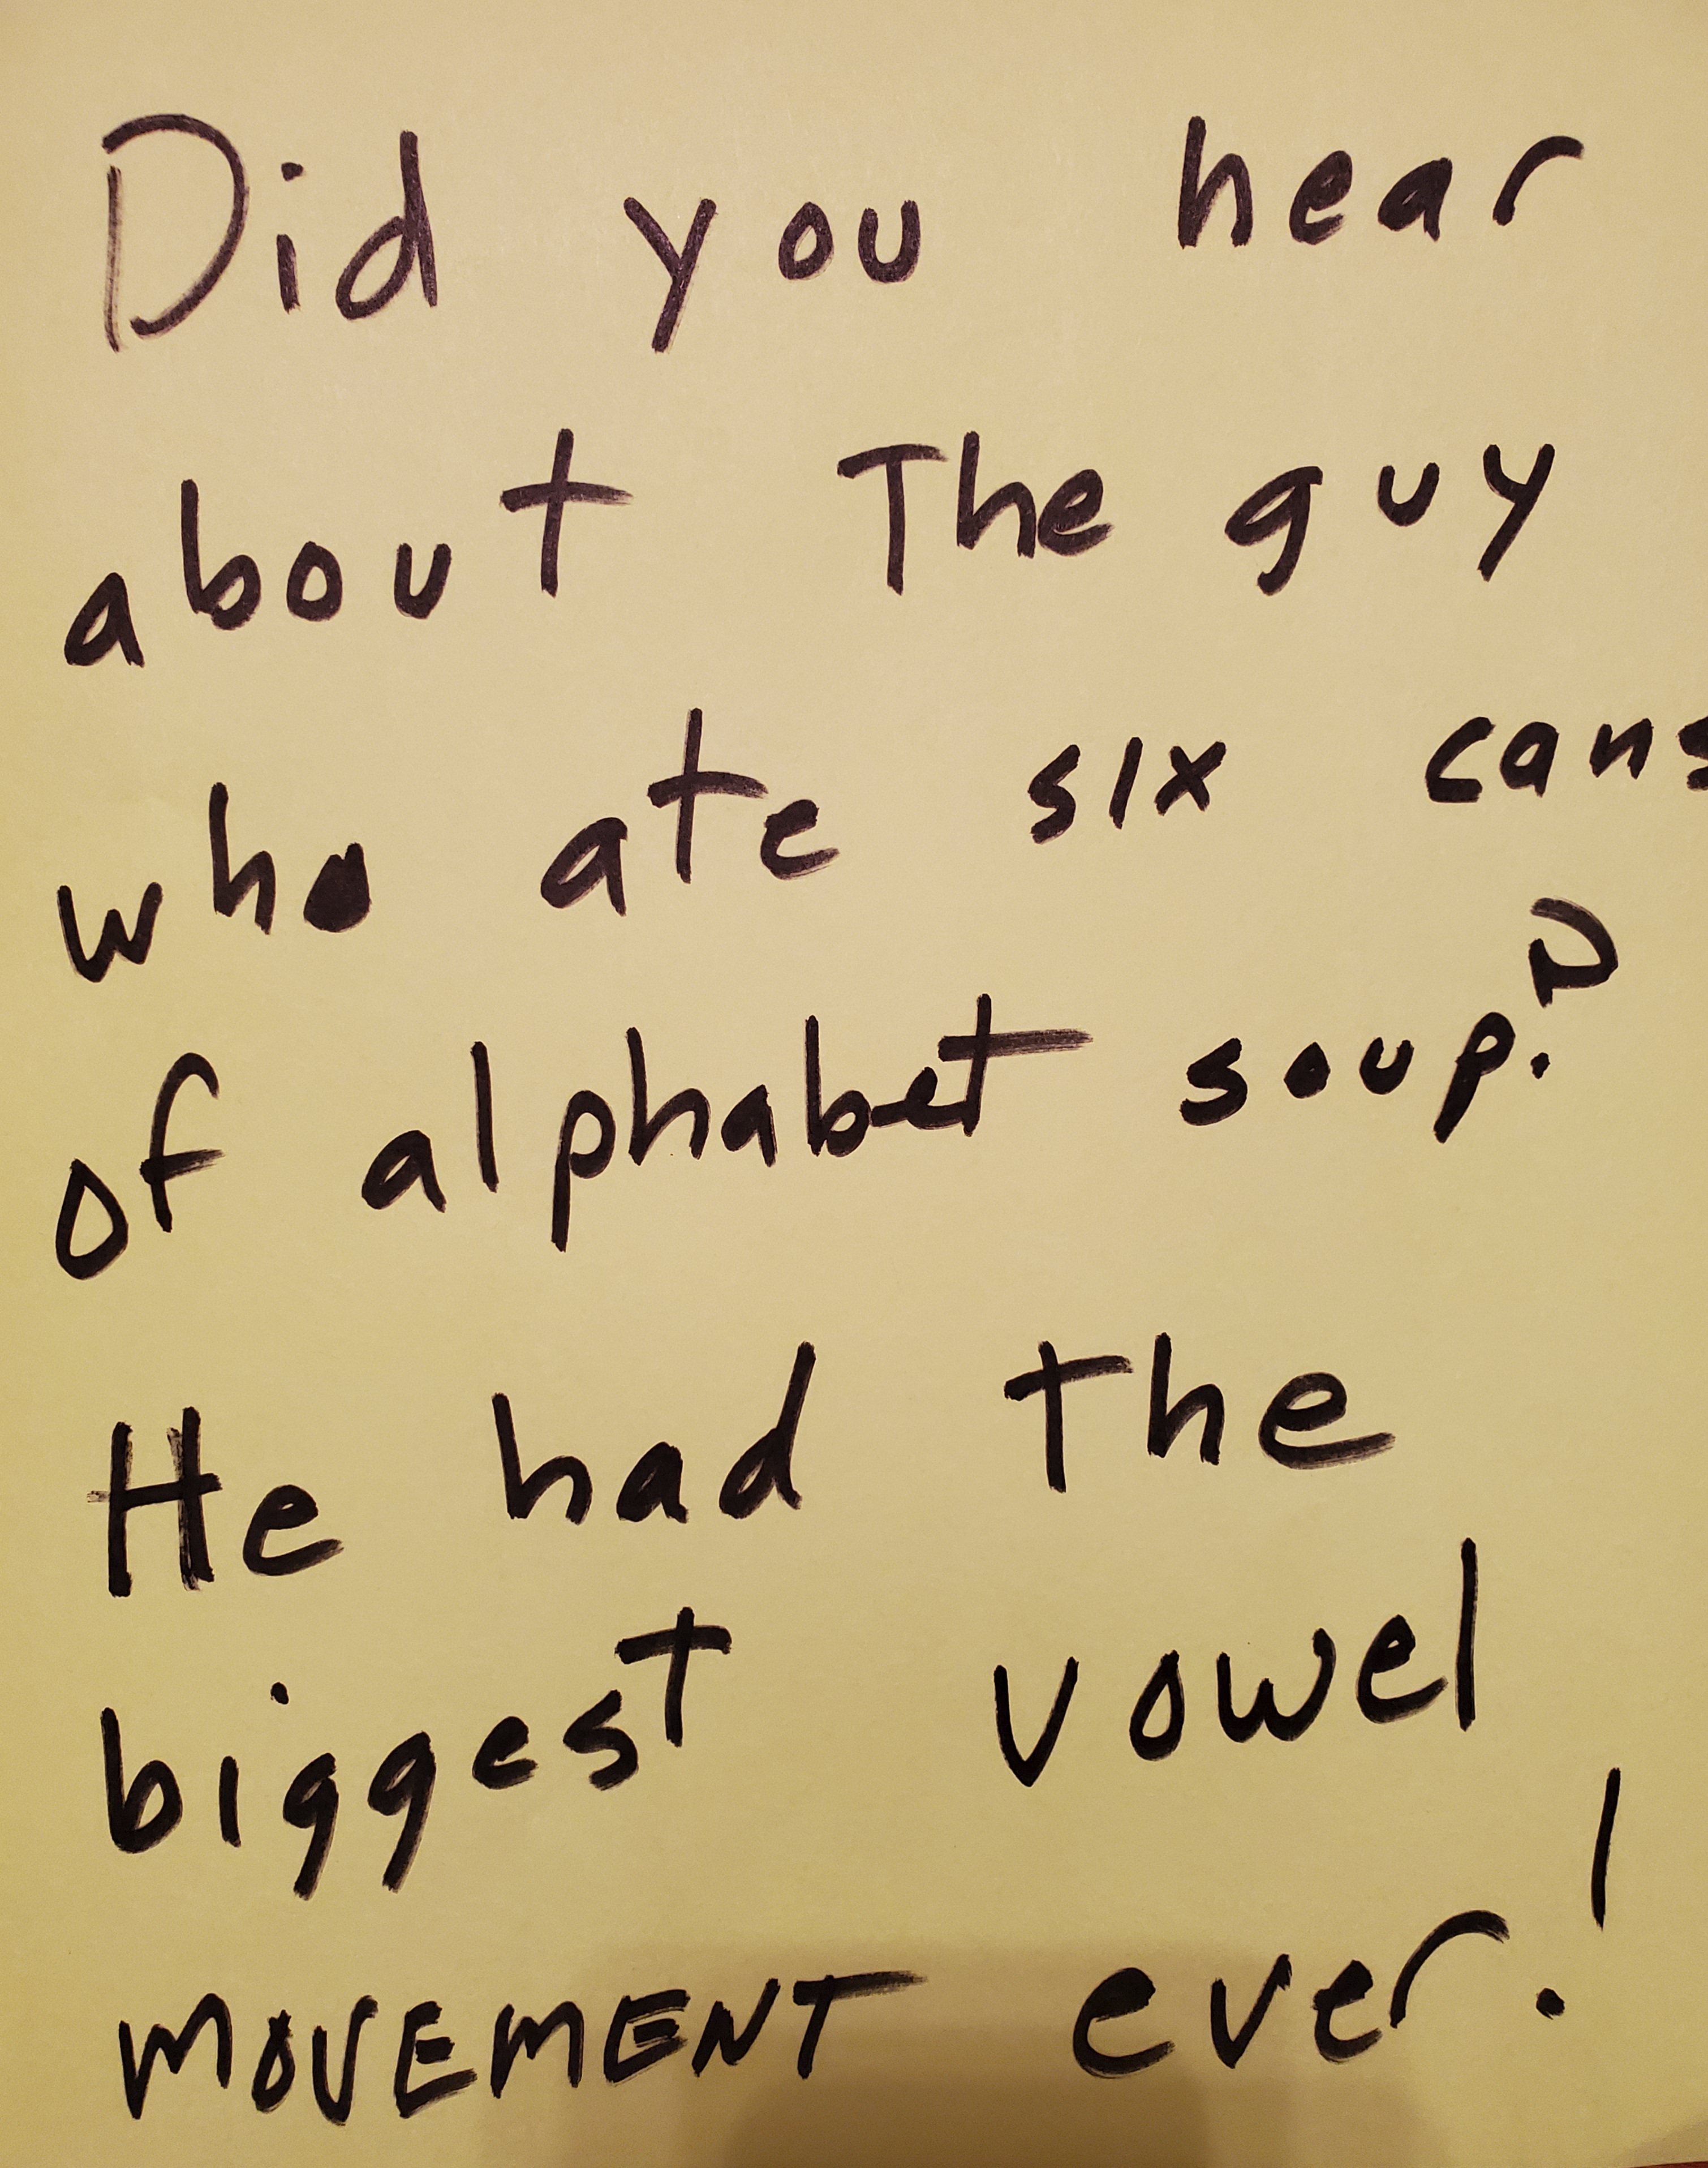 Did you hear
about The guy
who ate six cans
of alphabet soup?
He had the
biggest vowel
MOVEMENT ever!